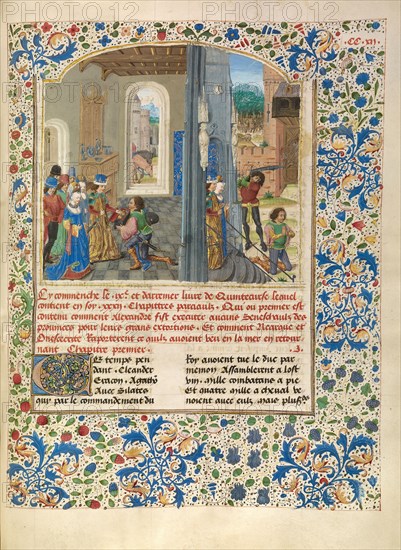 CC·XII
Cy commenche le ·ix·e et darrenier livre de Quintecurse lequel
contient en soy ·xxxij· Chapittres parciaulx. Ou premier est
contenu comment Alexandre fist executer aucuns Seneschaulx des
provinces pour leurs grans extorcions. Et comment Nearque et
Onesecrite rapporterent ce qu'ilz avoient veu en la mer en retour
nant Chapitre premier. ·I·
EN CE temps pen
dant, Cleander
Etacon, Agathō
Avec Silares
quy par le commandement du
Roy avoient tue le duc par
menion Assamblerent a lost
mille combatans a pie
Et quatre mille a cheval ve
noient avec eulz. Mais plus